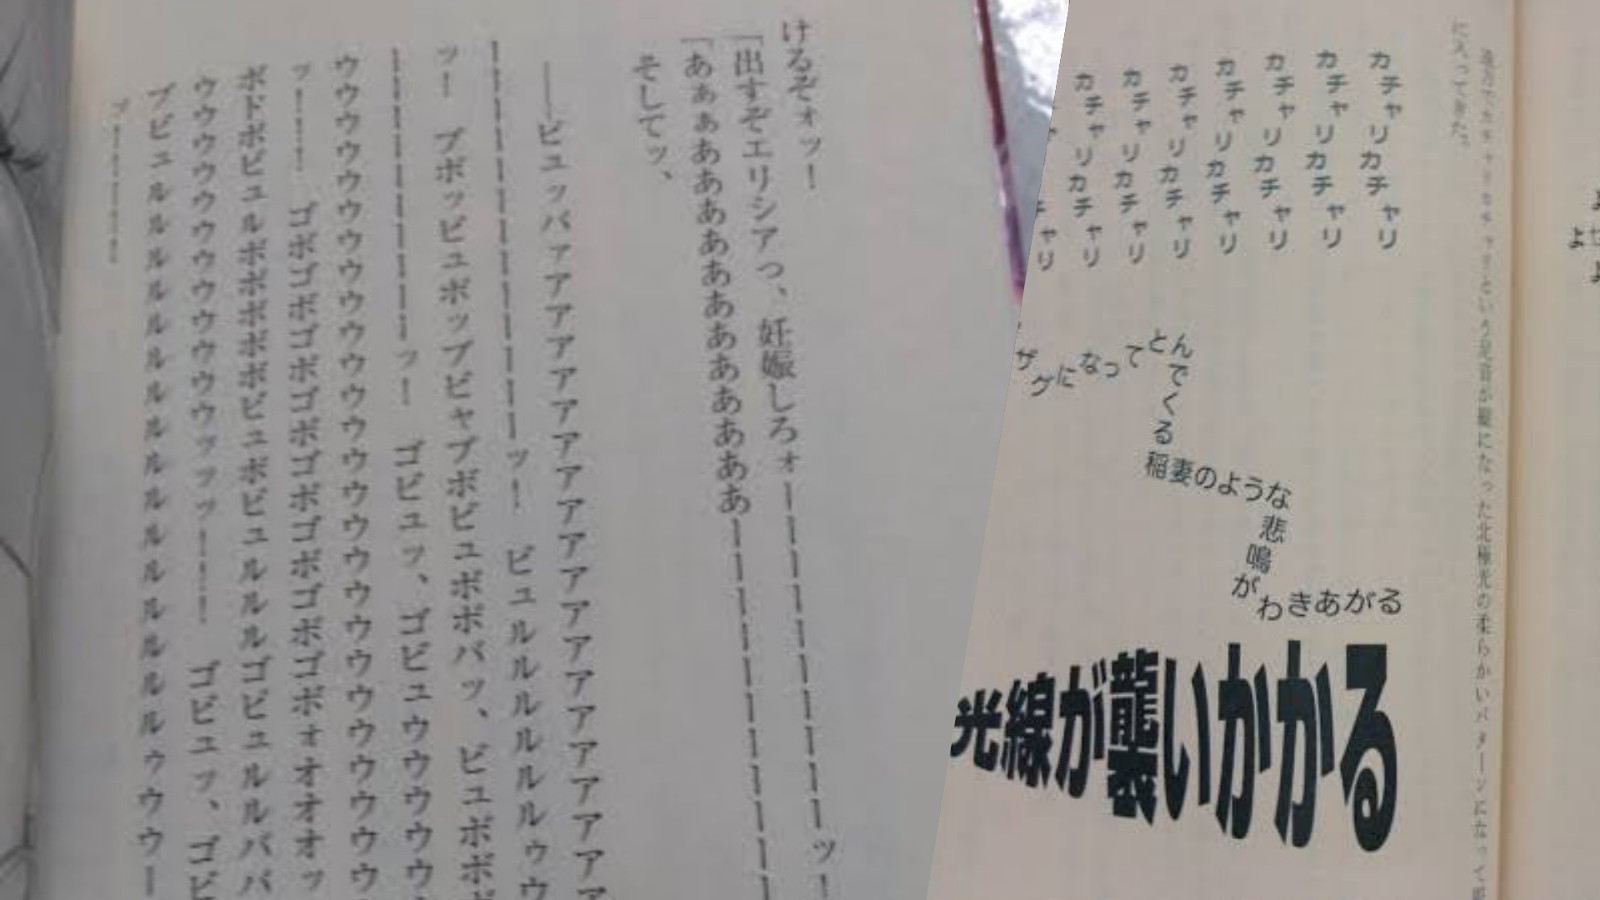 遠方でカチャリカチャリという足音が縦になった北極光の柔らかいパターンになって
に入ってきた。
カチャリカチャリ
カチャリカチャリ
カチャリカチャリ
カチャリカチャリ
カチャリカチャリ
カチャリカチャリ
カチャリカチャリ
ザグになって
とんでくる
稲妻のような
悲鳴が
わきあがる
光線が襲いかかる
けるぞォッ！
「出すぞエリシアっ、妊娠しろォーーーーーーーーーーーーッ！
「あぁぁああああああああああああーーーーーーーーーーーー
そしてッ、
――ビュッバァアアアアアアアアアアアアアアアアアアアアア
ーーーーーーーーーーーーッ！　ビュルルルルルルルゥウ
ッー　ブボッビュボップビャブボビュボボバッ、ビュボボボ
ーーーーーーーーーーッー　ゴビュッ、ゴビュウウウウウ
ウウウウウウウウウウウウウウウウウウウウウウウウウウ
ッーーー！　ゴボゴボゴボゴボゴボゴボゴボゴボォオオオッ
ボドボビュルボボボボボビュボビュルルルゴビュルルバババ
ウウウウウウウウウウウウッッッーーー！　ゴビュッ、ゴビ
ブビュルルルルルルルルルルルルルルルルルルルルゥウウー